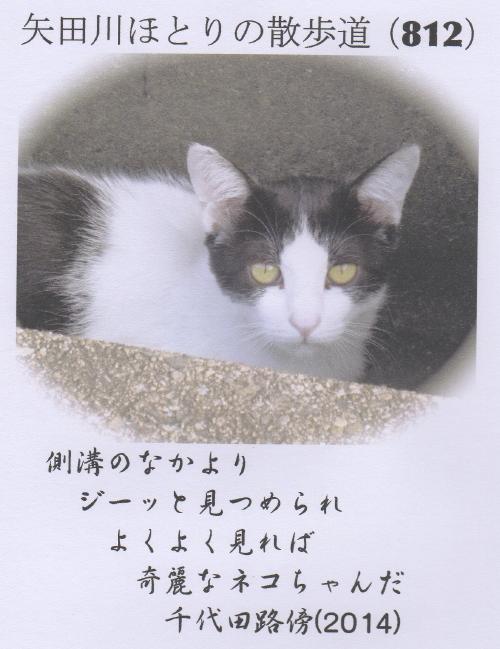 矢田川ほとりの散歩道 (812)
側溝のなかより
ジーッと見つめられ
よくよく見れば
奇麗なネコちゃんだ
千代田路傍(2014)